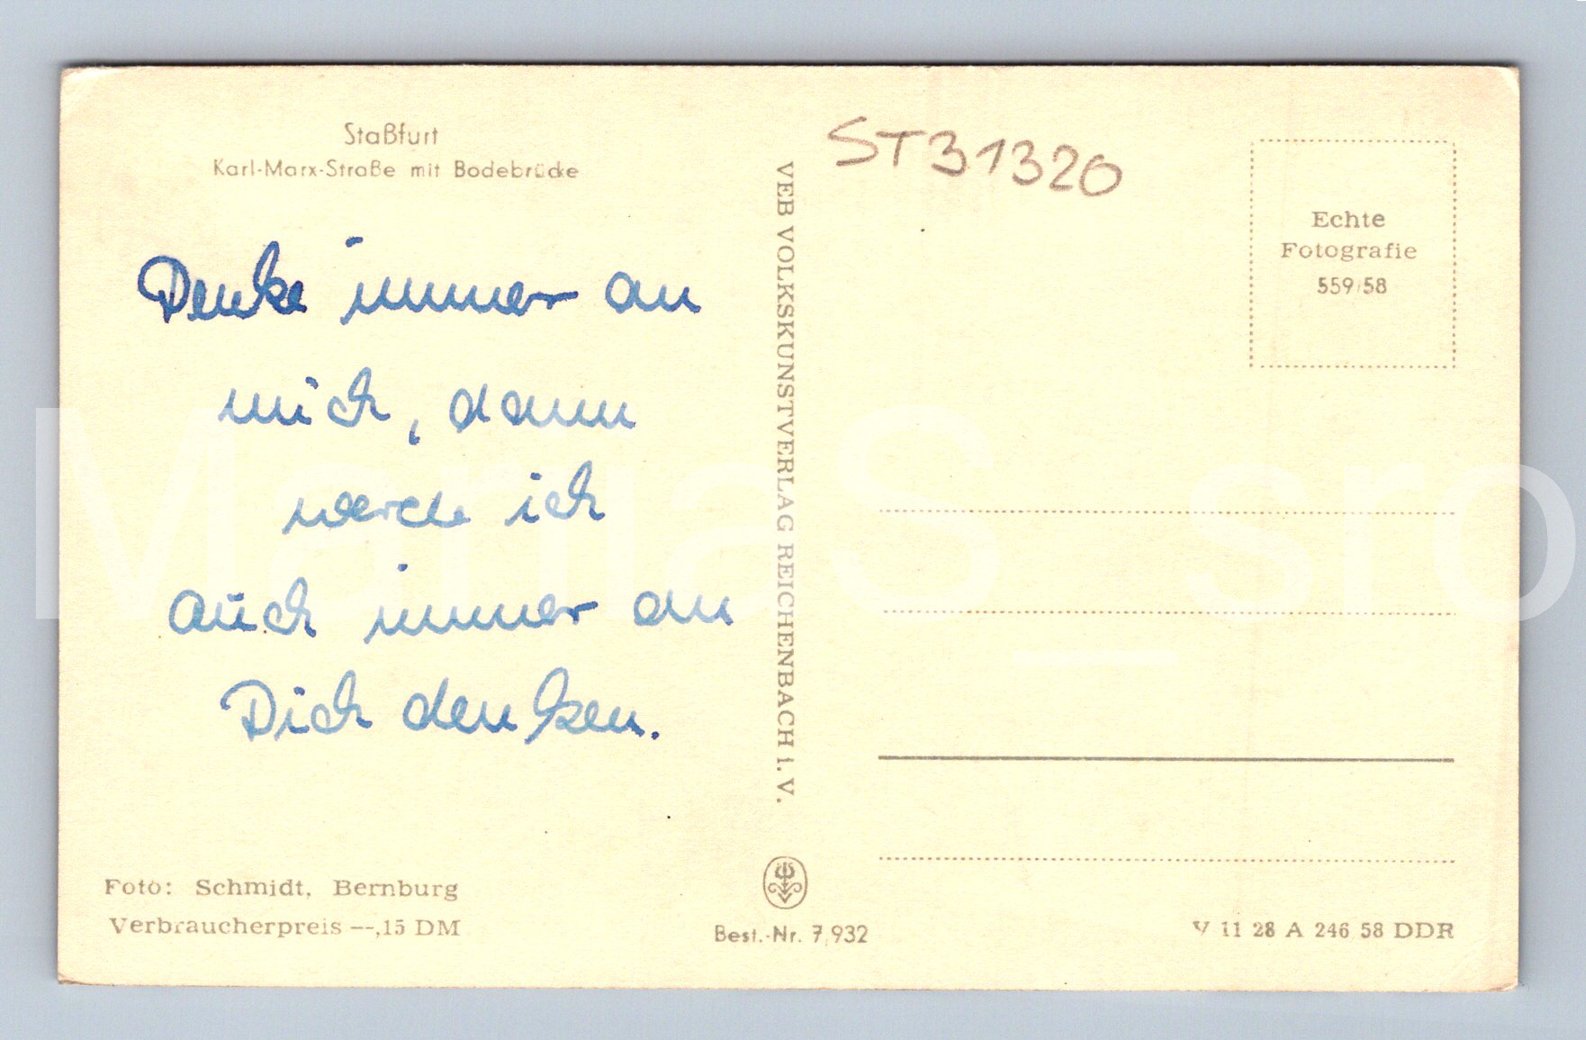 Staßfurt
Karl-Marx-Straße mit Bodebrücke
Denke immer an
mich, dann
werde ich
auch immer an
Dich denken.
Foto: Schmidt, Bernburg
Verbraucherpreis --,15 DM
VEB VOLKSKUNSTVERLAG REICHENBACH i. V.
Best.-Nr. 7,932
ST31320
Echte
Fotografie
559/58
V 11 28 A 246 58 DDR
MartiaS_sro